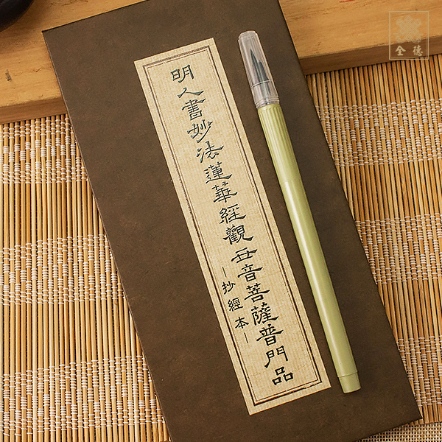 明人書妙法蓮華經觀世音菩薩普門品
-抄經本-
全德